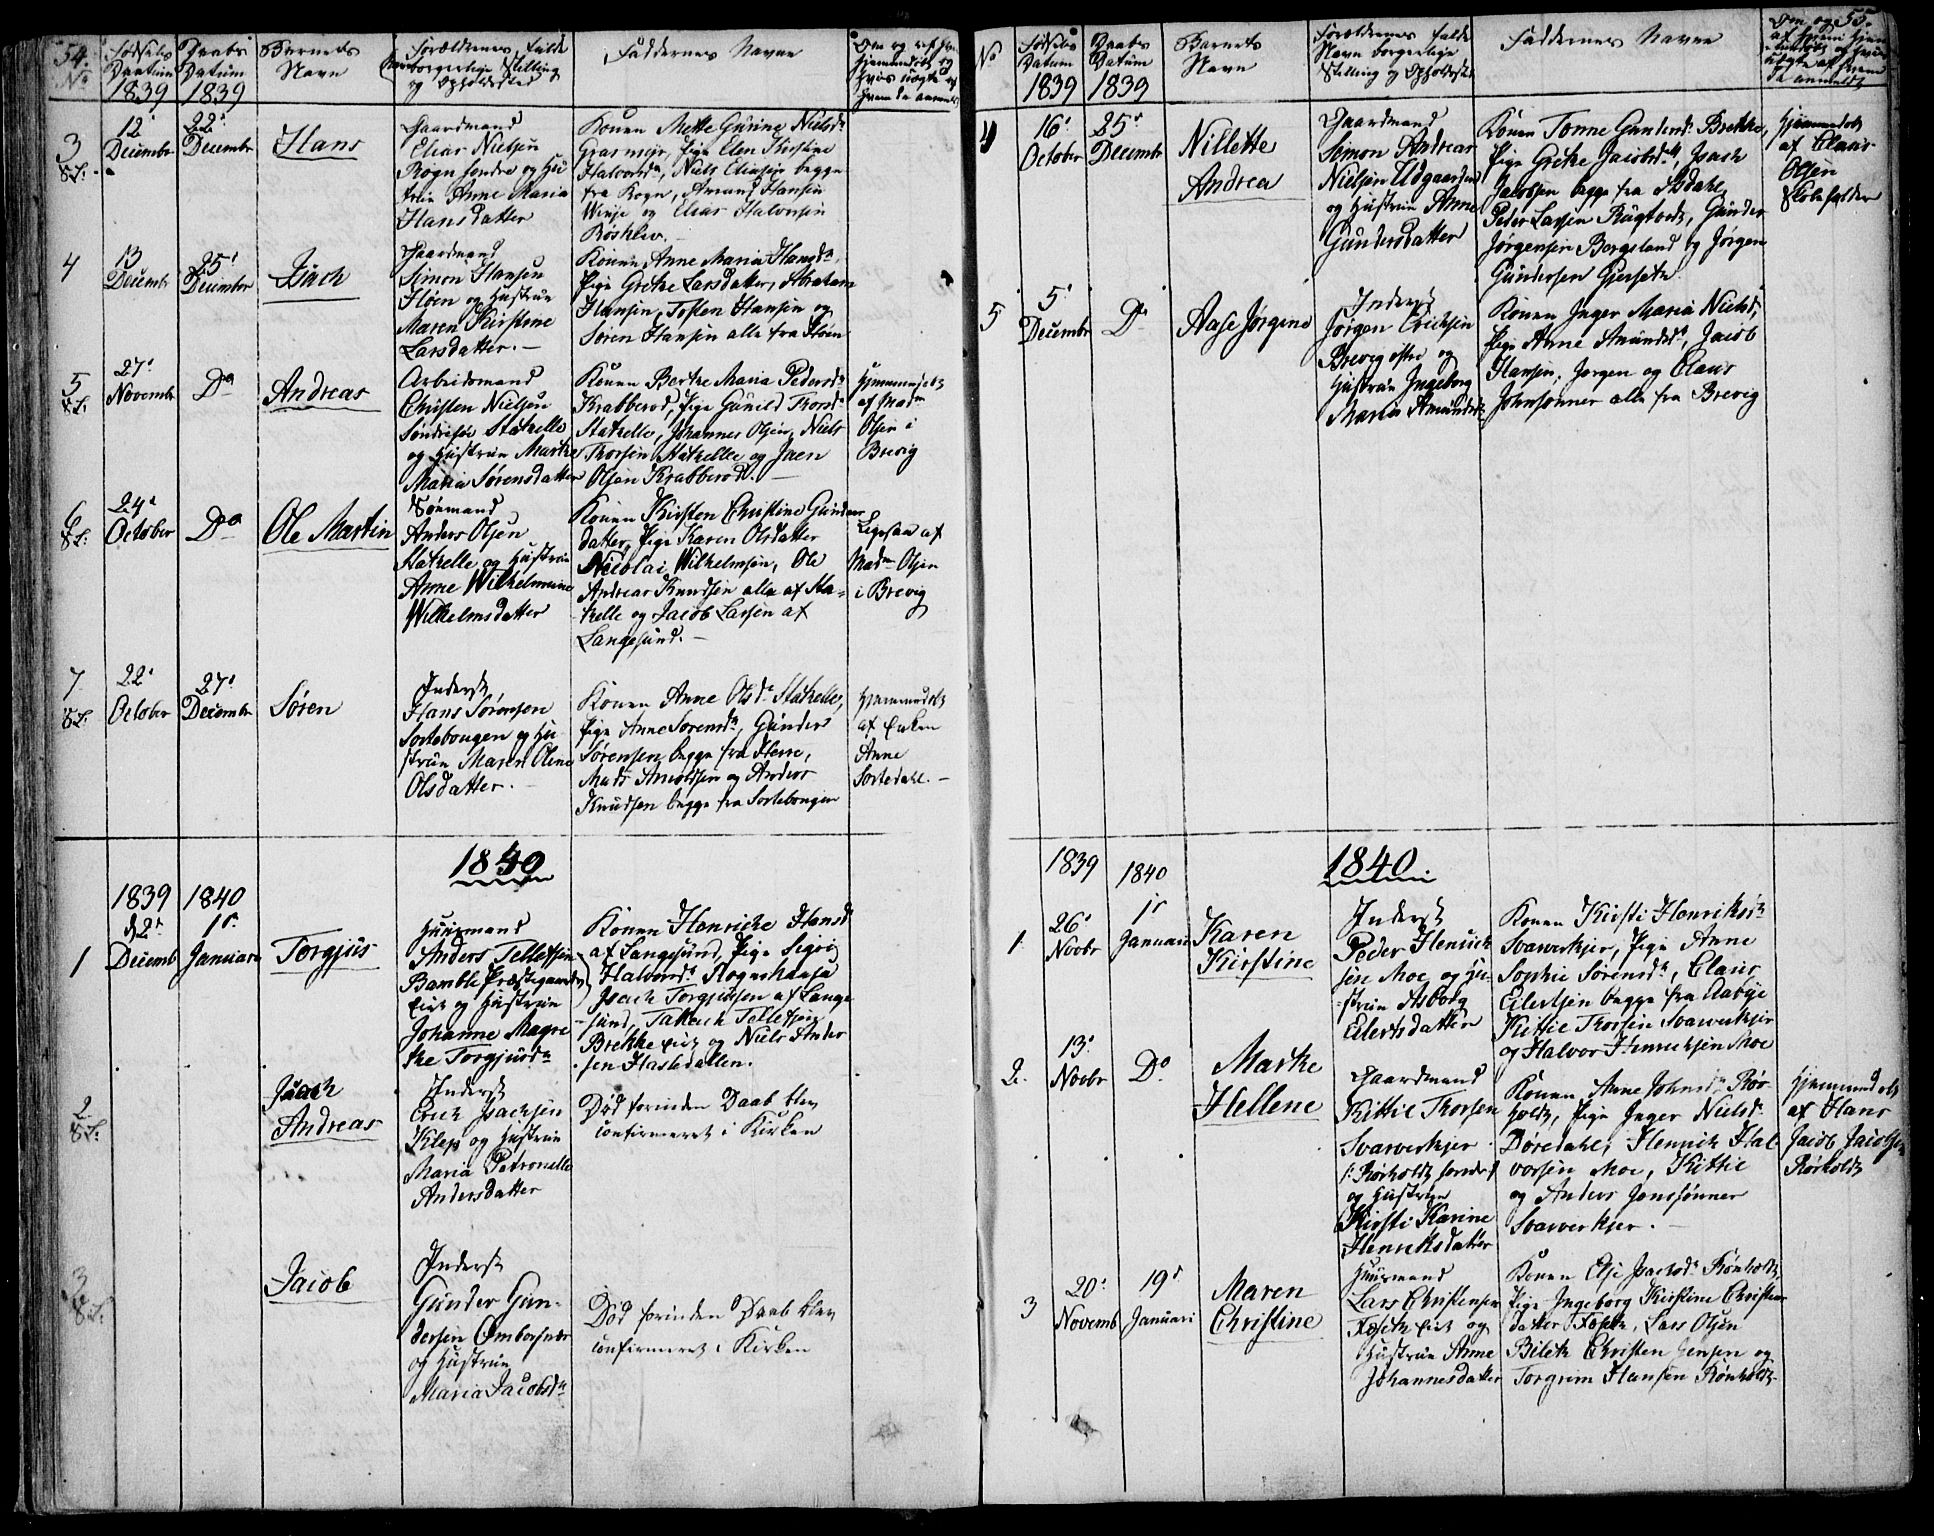 54.
No
Fødsels
Daatum
1839
Daabs
Datum
1839
Barnets
Navn
Forældrenes fulde
Navn borgerlige Stilling
og Opholdsted
Faddernes Navne
3
12'
Decembr
22'
Decembr
Hans
Gaardmand
Elias Nielsen
Rogn søndre og Hu
strue Anne Maria
Hansdatter
Konen Mette Gurine Nielsdr
Grasmyr, Pige Elen Kirstine
Halvorsdr, Niels Eliasen begge
fra Rogn, Amund Hansen
Winje og Elias Halvorsen
Røsklev.
4
13
Decembr
25'
Decembr
Isach
Gaardmand
Simon Hansen
Fløen og Hustrue
Maren Kirstine
Larsdatter. —
Konen Anne Maria Hansdr
Pige Grethe Larsdatter, Abraham
Hansen, Tosten Hansen og
Søren Hansen alle fra Fløen
5
27'
Novembr
Do
Andreas
Arbeidsmand
Christen Nielsen
Søndre Stathelle
og Hustrue Marthe
Maria Sørensdatter
Konen Berthe Maria Pedersdr
Krabberød, Pige Gunild Thorsdr
Stathelle, Johannes Olsen, Niels
Thorsen Stathelle og Jaen
Olsen Krabberød. —
Hjemmedøbt
af Madm
Olsen i
Brevig
6
24'
October
Do
Ole Martin
Sømand
Anders Olsen
Stathelle og Hustrue
Anne Wilhelmine
Wilhelmsdatter
Konen Kirsten Christine Gunders
datter, Pige Karen Olsdatter
Nicolai Wilhelmsen, Ole
Andreas Knudsen alle af Sta-
thelle og Jacob Larsen af
Langesund. —
Ligesaa af
Madm Olsen
i Brevig
7
22'
October
27'
Decembr
Søren
Inderst
Hans Sørensen
Sortebougen og Hu
strue Maren Olene
Olsdatter.
Konen Anne Olsdr Stathelle,
Pige Anne Sørensdr, Gunder
Sørensen begge fra Herre,
Mads Amoldsen og Anders
Knudsen begge fra Sortebougen
Hjemmedøbt
af Enken
Anne
Sortedahl. —
1840
1839
1840
1
d 2'
Decemb
1'
Januari
Torgjus
Huusmand
Anders Tellefsen
Bamble Præstegaards
Eiet og Hustrue
Johanne Magre
the Torgjusdr
Konen Henriche Hansdr
af Langesund, Pige Segri
Halvorsdr Rognshaua
Isach Torgjussen af Lange
sund, Tallach Tellefsen
Brekke Eiet og Niels Ander
sen Hasledallen.
2
Isach
Andreas
Inderst
Erich Isachsen
Klep og Hustrue
Maria Petronelle
Andersdatter
Død forinden Daab blev
confirmeret i Kirken
3
Jacob
Inderst
Gunder Gun-
dersen Omborsnes
og Hustrue
Maria Jacobsdr
Død forinden Daab blev
confirmeret i Kirken
55.
No
Fødsels
Datum
1839
Daabs
Datum
1839
Barnets
Navn
Forældrenes fulde
Navn borgerlige
Stilling og Opholdsted
Faddernes Navne
4
16'
October
25'
Decembr
Nillette
Andrea
Gaardmand
Simon Andreas
Nielsen Udgaarden
og Hustrue Anne
Gundersdatter
Konen Tonne Gundersdr Brekke,
Pige Grethe Jacobsdr, Isach
Jacobsen begge fra Asdahl
Peder Larsen Rugtvedt, Gunder
Jørgensen Bergsland og Jørgen
Gundersen Gjersete
Hjemmedøbt
af Claus
Olsen
Skothfalden
5
5'
Decembr
Do
Aase Jørgine
Inderst
Jørgen Erichsen
Brevig østre og
Hustrue Ingeborg
Maria Amundsdr
Konen Inger Maria Nielsdr,
Pige Anne Amundsdr, Jacob
Hansen, Jørgen og Claus
Johnsønner alle fra Brevig
1840
1839
1840
1
26'
Novbr
1'
Januari
Karen
Kirstine
Inderst
Peder Henrich
sen Moe og Hu-
strue Asborg
Eilertsdatter
Konen Kirsti Henriksdr
Svarverkjer, Pige Anne
Sophie Sørensdr, Claus
Eilertsen begge fra Aabye
Kittil Thorsen Svarverkjer
og Halvor Henrichsen Moe
2.
13'
Novbr
Do
Marthe
Hellene
Gaardmand
Kittil Thorsen
Svarverkjer
/: Rørholdt søndre :/
og Hustrue
Kirsti Karine
Henriksdatter
Konen Anne Johnsdr Rør
holdt, Pige Inger Nielsdr
Døredahl, Henrich Hal
vorsen Moe, Kittil
og Anders Jonssønner
Svarverkjer. —
Hjemmedøbt
af Hans
Jacob Jacobsen
Rørholdt
3
20'
Novemb
19'
Januari
Maren
Christine
Huusmand
Lars Christensen
Fosch Eiet og
Hustrue Anne
Johannesdatter
Konen Else Isachsdr Rønholdt,
Pige Ingeborg Kirstine Christens
datter, Lars Olsen
Christen Jensen og
Torgrim Hansen Rønholdt